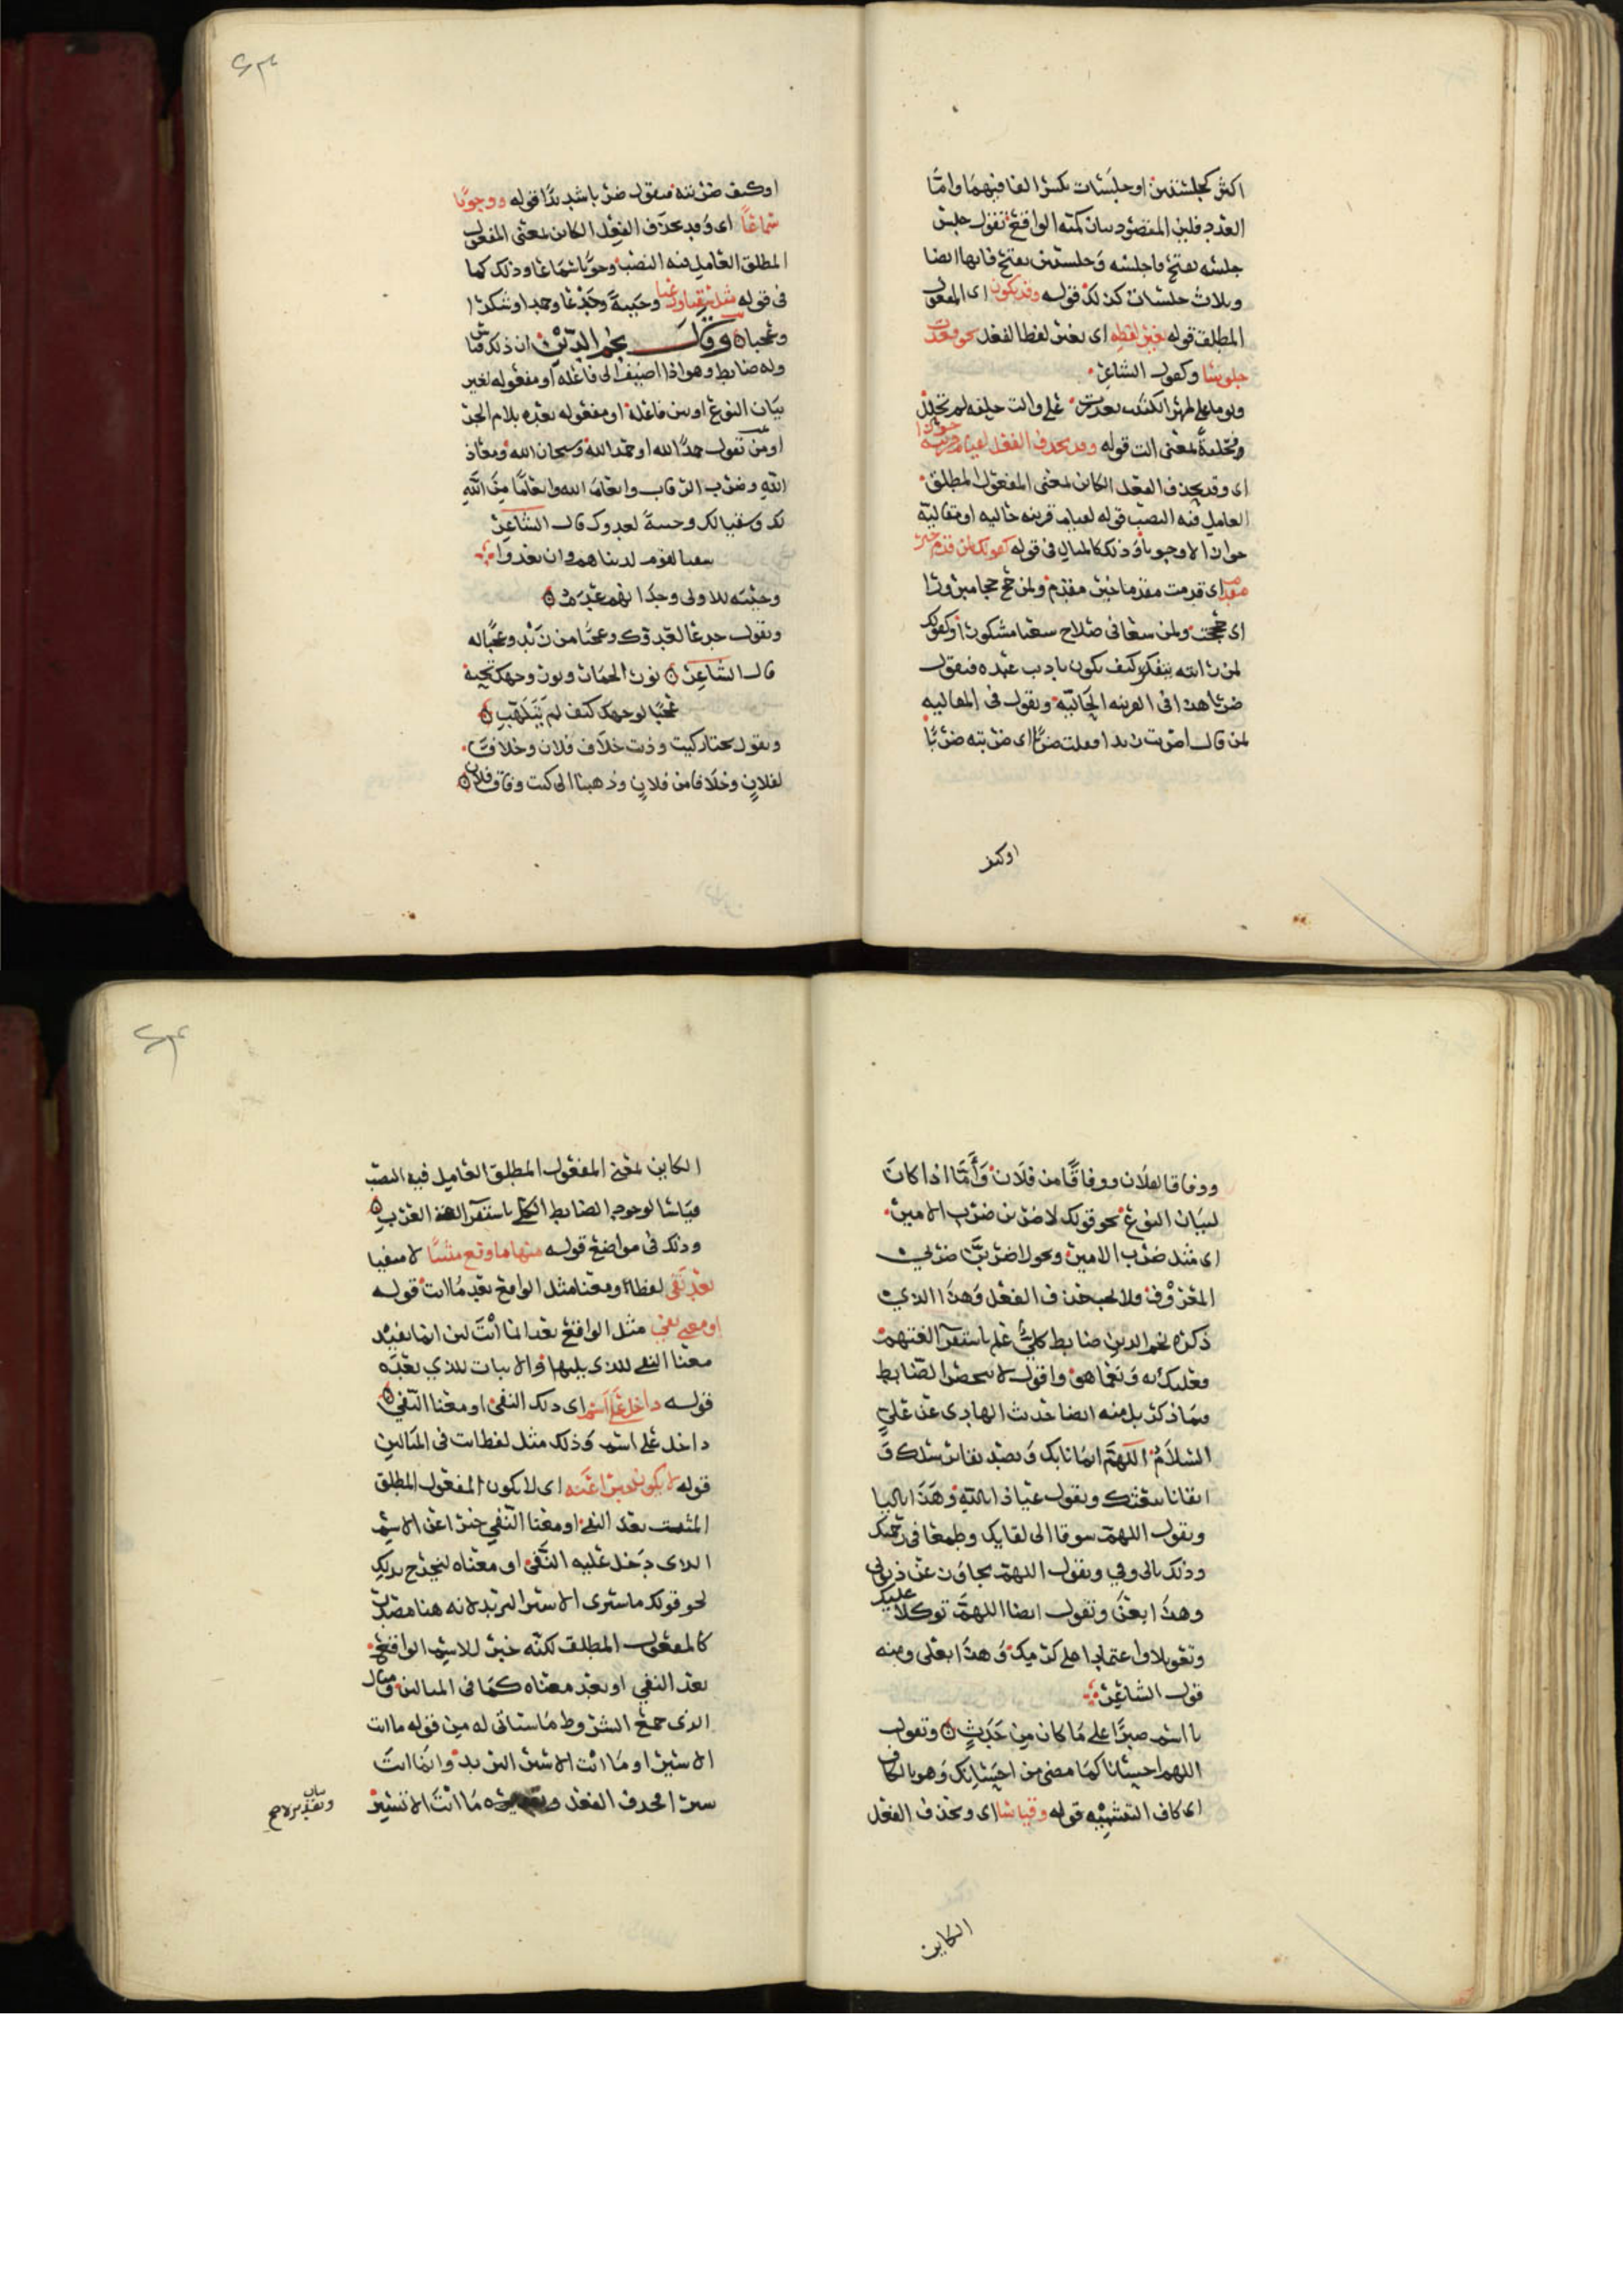 اكثر كجلستين او جلسات بكسر الفا فيهما واما
العدد فلبن المقصود بيان كمية الواقع تقول جلست
جلسة بفتح فاجلسه وجلستين بفتح فايها ايضا
وثلاث جلسات كذلك قوله وقد يكون اى المفعول
المطلق قوله بغير لفظه اى بغير لفظ الفعل نحو قعدت
جلوسا وكقول الشاعر
ويوما على ظهر الكثيب تعذرت على والت حلفة لم تحلل
وحلفة بمعنى الت قوله وقد يحذف الفعل لقيام قرينة جوازا
اى وقد يحذف الفعل الكاين بمعنى المفعول المطلق
العامل فيه النصب قوله لقيام قرينه حاليه او مقالية
جوازا لا وجوبا وذلك كالمثال فى قوله كقولك لمن قدم خير
مقدم اى قدمت مقدما خير مقدم ولمن حج حجا مبرورا
اى حججت ولمن سعا فى صلاح سعيا مشكورا وكقولك
لمن راته يتفكر كيف يكون يادب عبده فيقول
ضربا هذا فى القرينه الحالية وتقول فى المقاليه
لمن قال اضربت زيدا فقلت ضربا اى ضربته ضربا
اوكيف
اوكيف ضربته فيقول ضربا شديدا قوله ووجوبا
سماعا اى وقد يحذف الفعل الكاين بمعنى المفعول
المطلق العامل فيه النصب وجوبا سماعا وذلك كما
فى قوله مثل سقيا ورعيا وخيبة وجدعا وحمدا وشكرا
وعجبا وقال نجم الدين ان ذلك قياس
وله ضابط وهو اذا اضيف الى فاعله او مفعوله لغير
بيان النوع او بين فاعله او مفعوله بعده بلام الجر
او من تقول حمدا لله او حمد الله وسبحان الله ومعاذ
الله وضرب الرقاب وانعام الله وانعاما من الله
لك وسقيا لك وخيبة لعدوك قال الشاعر
سقيا لقوم لدينا هم وان بعدوا
وخيبة للاولى وجدانهم عدم
وتقول جدعا لعبدك وعجبا من زيد وعجبا له
قال الشاعر نور الحمان ونور وجهك تحية
عجبا لوجهك كيف لم يتلهب
وتقول تختار كيت وذيت خلاف فلان وخلافا
لفلان وخلافا من فلان وذهبنا الى كيت وفاق فلان
ووفاقا لفلان ووفاقا من فلان واما اذا كان
لبيان النوع نحو قولك لاضربن ضرب الامير
اى مثل ضرب الامير ونحو لاضربن ضربي
المعروف فلا يجب حذف الفعل وهذا الذي
ذكره نجم الدين ضابط كلي علم باستقرا لغتهم
فعليك به ونعما هو واقول لا ينحصر الضابط
فيما ذكر بل منه ايضا حديث الهادى عن علي
السلام اللهم ايمانا بك وتصديقا برسلك و
ايقانا ببعثك وتقول عياذا بالله وهذا بالبا
وتقول اللهم شوقا الى لقايك وطمعا فى رحمتك
وذلك بالى وفي وتقول اللهم تجاوز عن ذنوبى
وهذا بعن وتقول ايضا اللهم توكلا عليك
وتعويلا واعتمادا على كرمك وهذا بعلى ومنه
قول الشاعر
يا اسم صبرا على ما كان من حدث وتقول
اللهم احسانا كما مضى من احسانك وهو بالكاف
اى كاف التشبيه قوله وقياسا اى ويحذف الفعل
الكاين
الكاين بمعنى المفعول المطلق العامل فيه النصب
قياسا لوجود الضابط الكلي باستقرا لغة العرب
وذلك فى مواضع قوله منها ما وقع مثبتا لا منفيا
بعد نفى لفظا او معنا مثل الواقع بعد ما انت قوله
او معنى نفي مثل الواقع بعد انما انت لان انما يفيد
معنا النفى للذى يليها والاثبات للذي بعده
قوله داخل على اسم اى ذلك النفى او معنا النفي
داخل على اسم وذلك مثل لفظ انت فى المثالين
قوله لا يكون خبرا عنه اى لا يكون المفعول المطلق
المثبت بعد النفى او معنا النفي خبرا عن الاسم
الذى دخل عليه النفى او معناه ليخرج بذلك
نحو قولك ما سيرى الا سير البريد لانه هنا مصدر
كالمفعول المطلق لكنه خبر للاسم الواقع
بعد النفي او بعد معناه كما فى المثالين ومثال
الذى جمع الشروط ما سياتى له من قوله ما انت
الا سيرا وما انت الا سير البريد وانما انت
سيرا فحذف الفعل وتقديره ما انت الا تسير